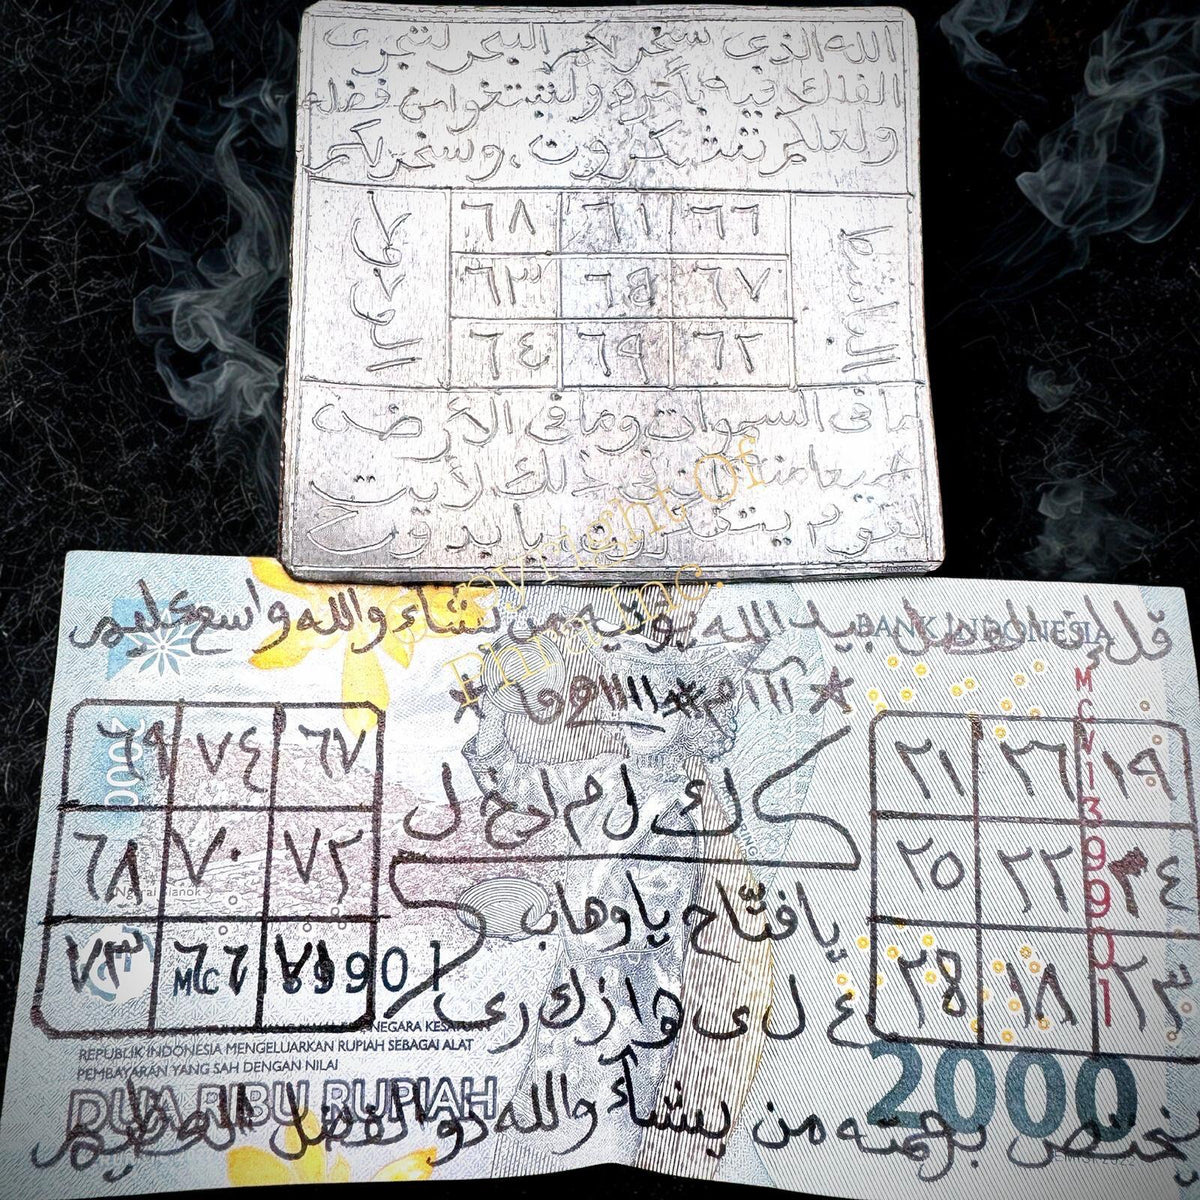 الله الذى سخر لكم البحر لتجرى
الفلك فيه بأمره ولتبتغوا من فضله
ولعلكم تشكرون . وسخر لكم
٦٨ ٦١ ٦٦
٦٣ ٦٥ ٦٧
٦٤ ٦٩ ٦٢
الباسط
ما فى السموات وما فى الأرض
جميعا منه إن فى ذلك لأيت
لقوم يتفكرون يا بدوح
Copyright Of
Inc.
قل إن الفضل بيد الله يؤتيه من يشاء والله واسع عليم
BANK INDONESIA
٦٩ ٧٤ ٦٧
٦٨ ٧٠ ٧٢
٧٣ ٦٦ ٧١
ك ل م ادخ ل
يا فتّاح يا وهاب
ع ل ى
٢١ ٢٦ ١٩
٢٥ ٢٢
١٨ ٢٣
MCV139901
NEGARA KESATUAN
REPUBLIK INDONESIA MENGELUARKAN RUPIAH SEBAGAI ALAT
PEMBAYARAN YANG SAH DENGAN NILAI
DUA RIBU RUPIAH
2000
يختص برحمته من يشاء والله ذو الفضل العظيم